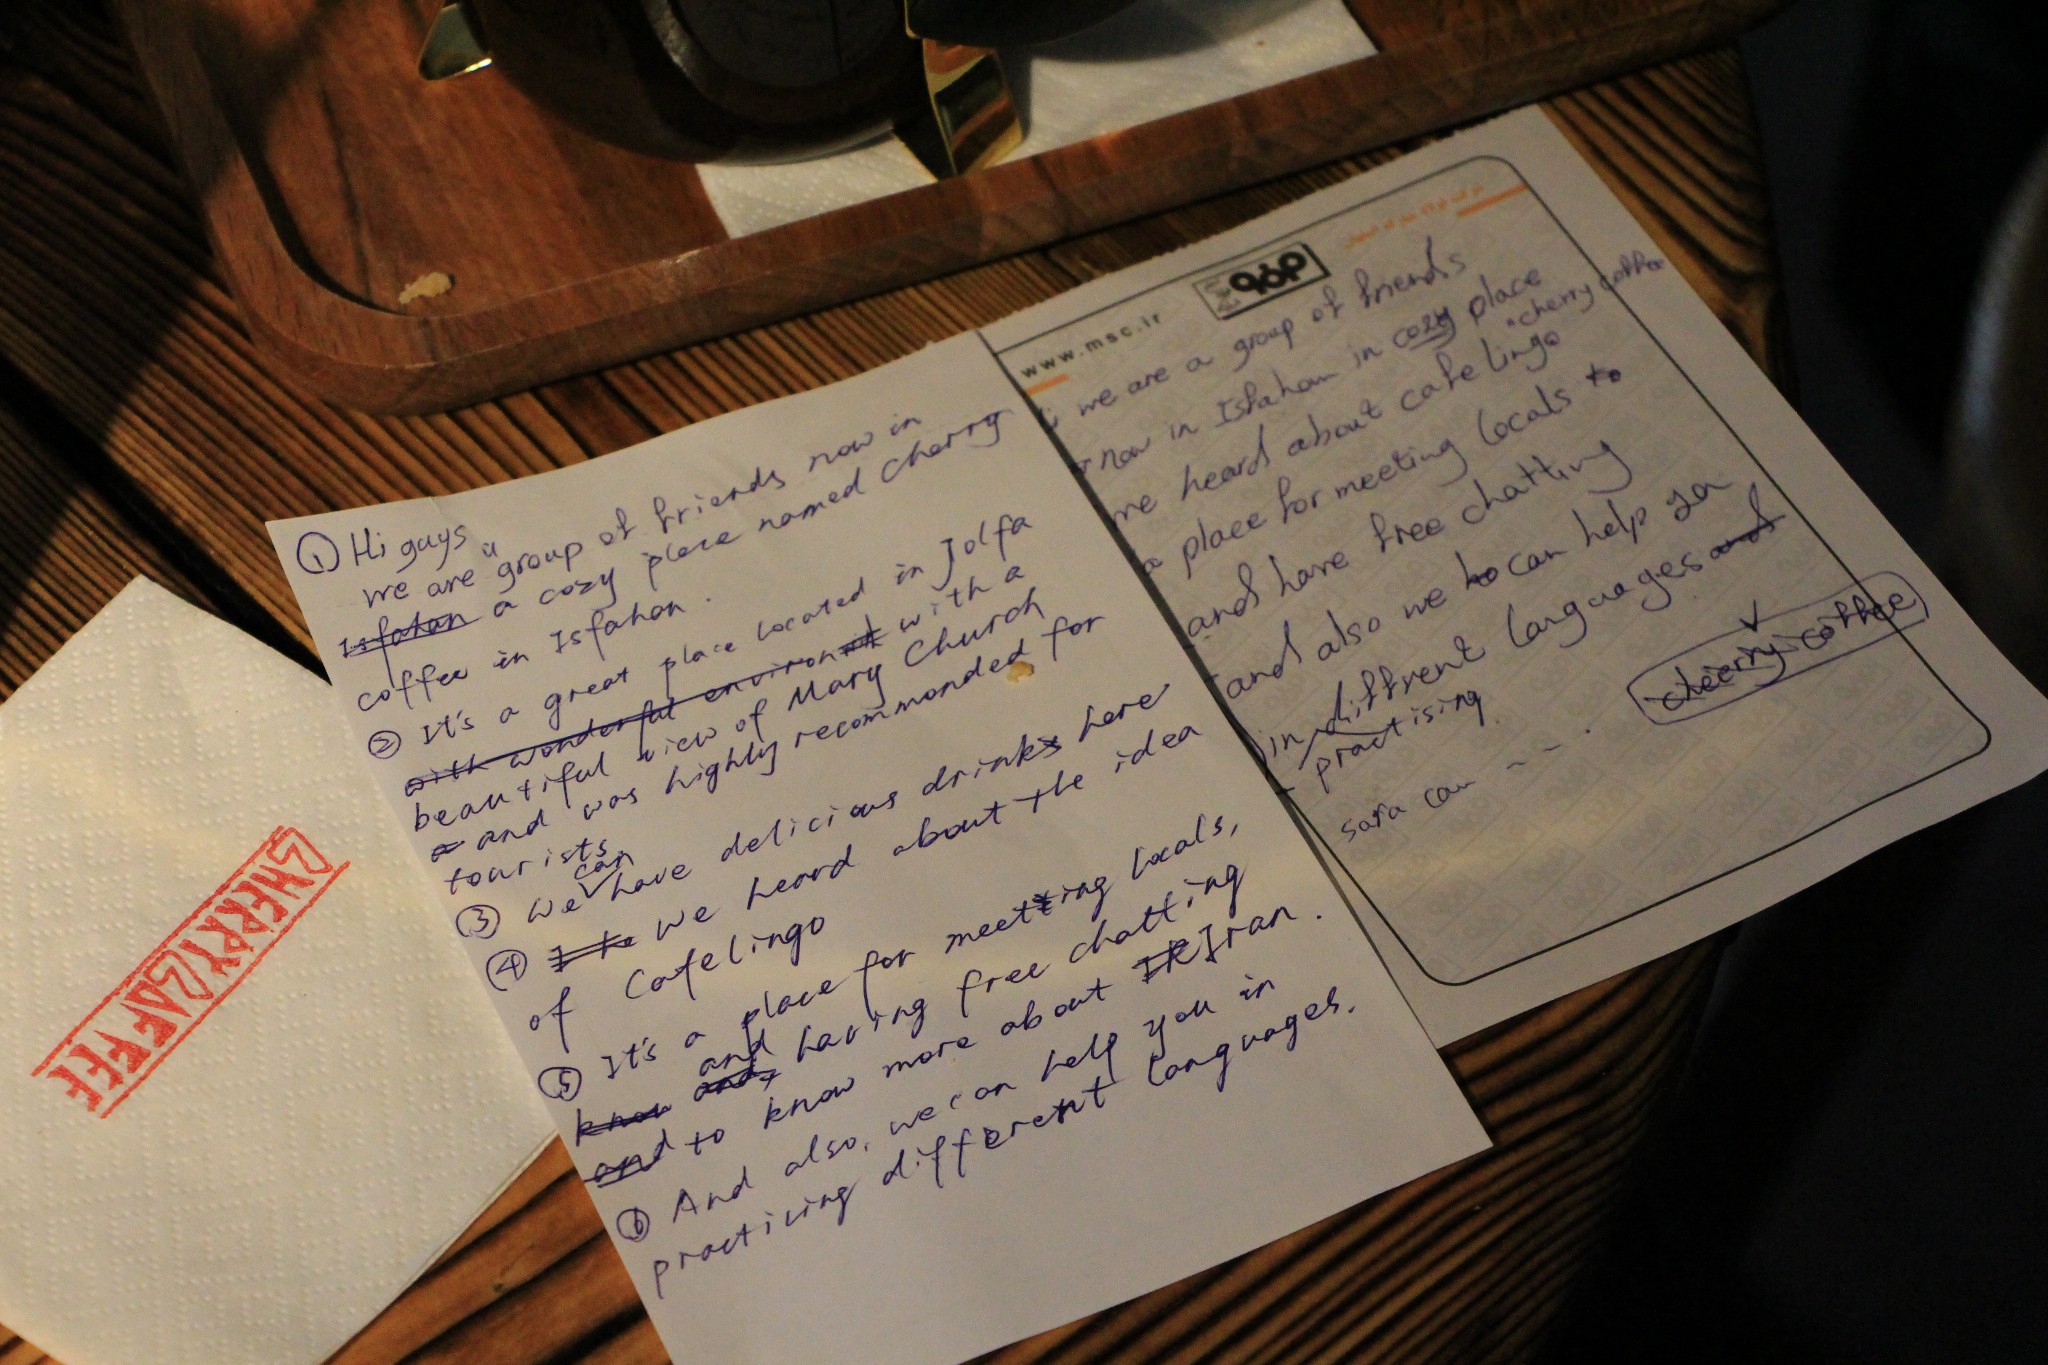 ① Hi guys
we are a group of friends now in
Isfahan a cozy place named Cherry
coffee in Isfahan.
② It's a great place located in Jolfa
with wonderful environ with a
beautiful view of Mary Church
and was highly recommonded for
tourists
③ We can have delicious drinks here
④ we heard about the idea
of Cafelingo
⑤ It's a place for meeting locals,
know and, and having free chatting
and to know more about IR Iran.
⑥ And also, we can help you in
practicing different languages.
www.msc.ir
we are a group of friends
now in Isfahan in cozy place
"cherry coffee
we heard about cafe lingo
a place for meeting locals to
and have free chatting
and also we can help you
in diffrent languages and
practising
cherry coffee
sara can ---.
CHERRY COFFEE